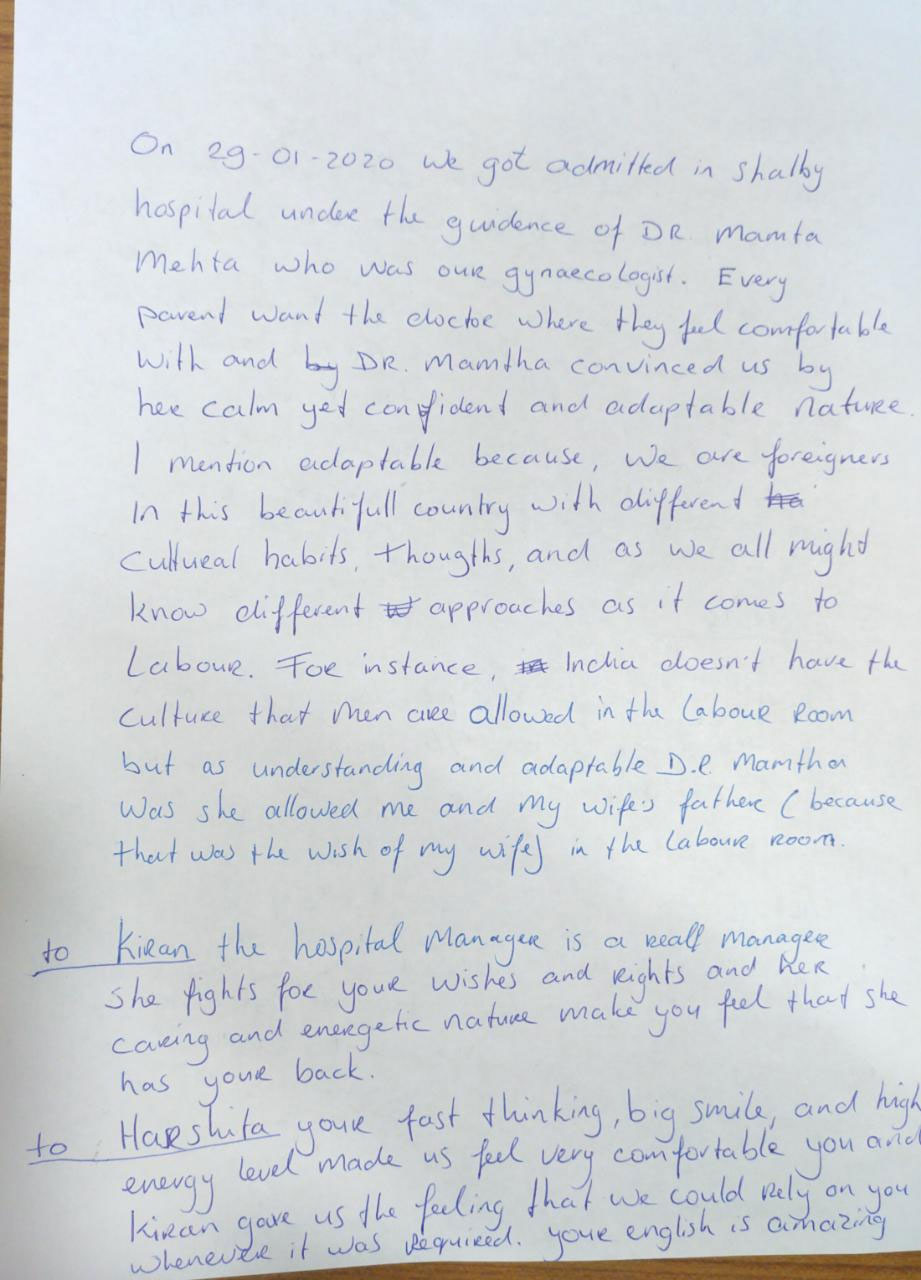 On 29-01-2020 we got admitted in shalby
hospital under the guidence of DR. Mamta
Mehta who was our gynaecologist. Every
parent want the doctor where they feel comfortable
with and by DR. Mamtha convinced us by
her calm yet confident and adaptable nature.
I mention adaptable because, we are foreigners
In this beautifull country with different ha
Cultureal habits, thougths, and as we all might
know different w approaches as it comes to
Labour. For instance, India doesn't have the
Culture that men are allowed in the labour room
but as understanding and adaptable D.R. Mamtha
was she allowed me and my wife's father (because
that was the wish of my wife) in the labour room.
to Kiran the hospital Manager is a reall manager
She fights for your wishes and rights and her
caring and energetic nature make you feel that she
has your back.
to Harshita your fast thinking, big smile, and high
energy level made us feel very comfortable you and
Kiran gave us the feeling that we could rely on you
whenever it was required. your english is amazing